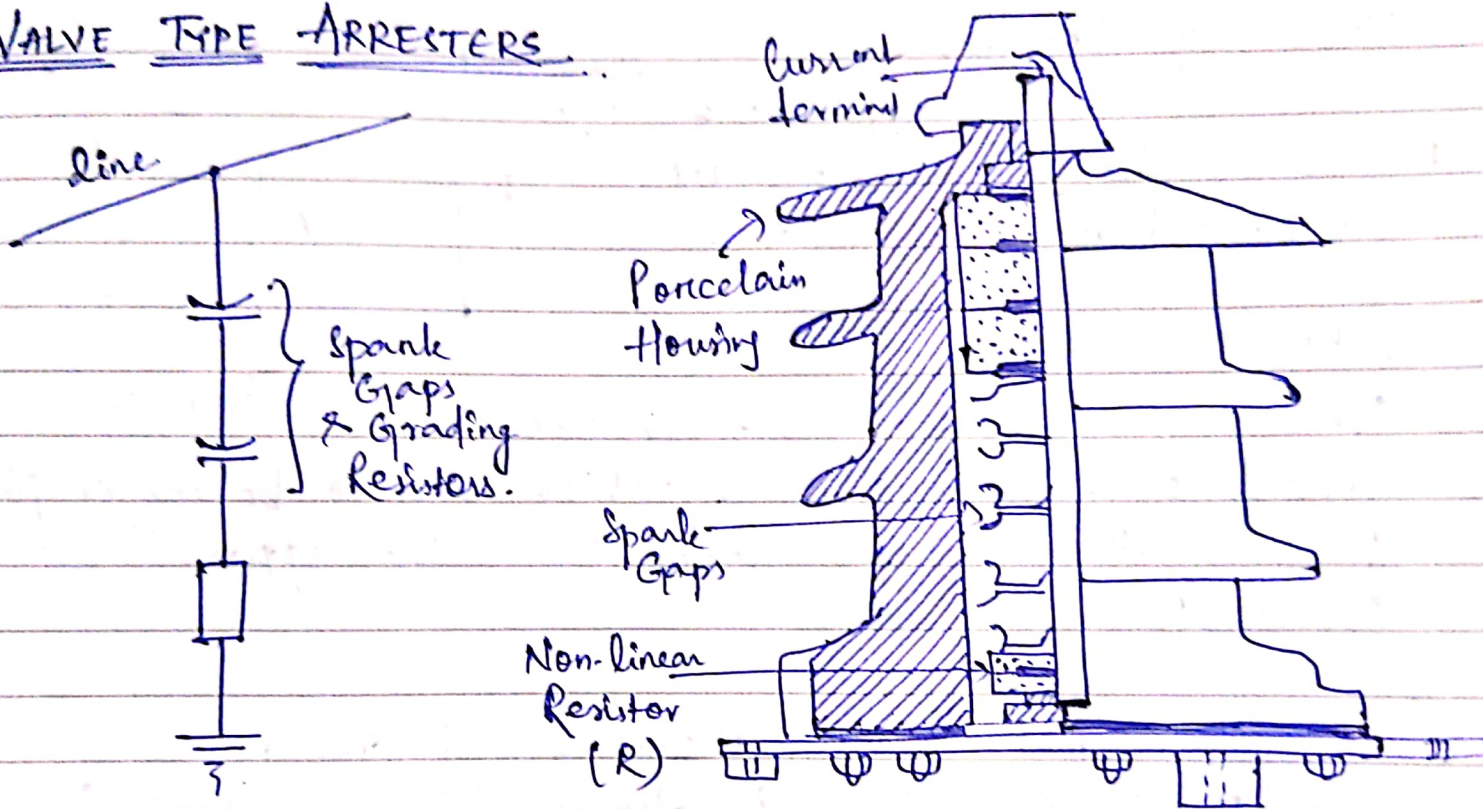 VALVE TYPE ARRESTERS
line
Spark
Gaps
& Grading
Resistors.
Current
terminal
Porcelain
Housing
Spark
Gaps
Non-linear
Resistor
(R)